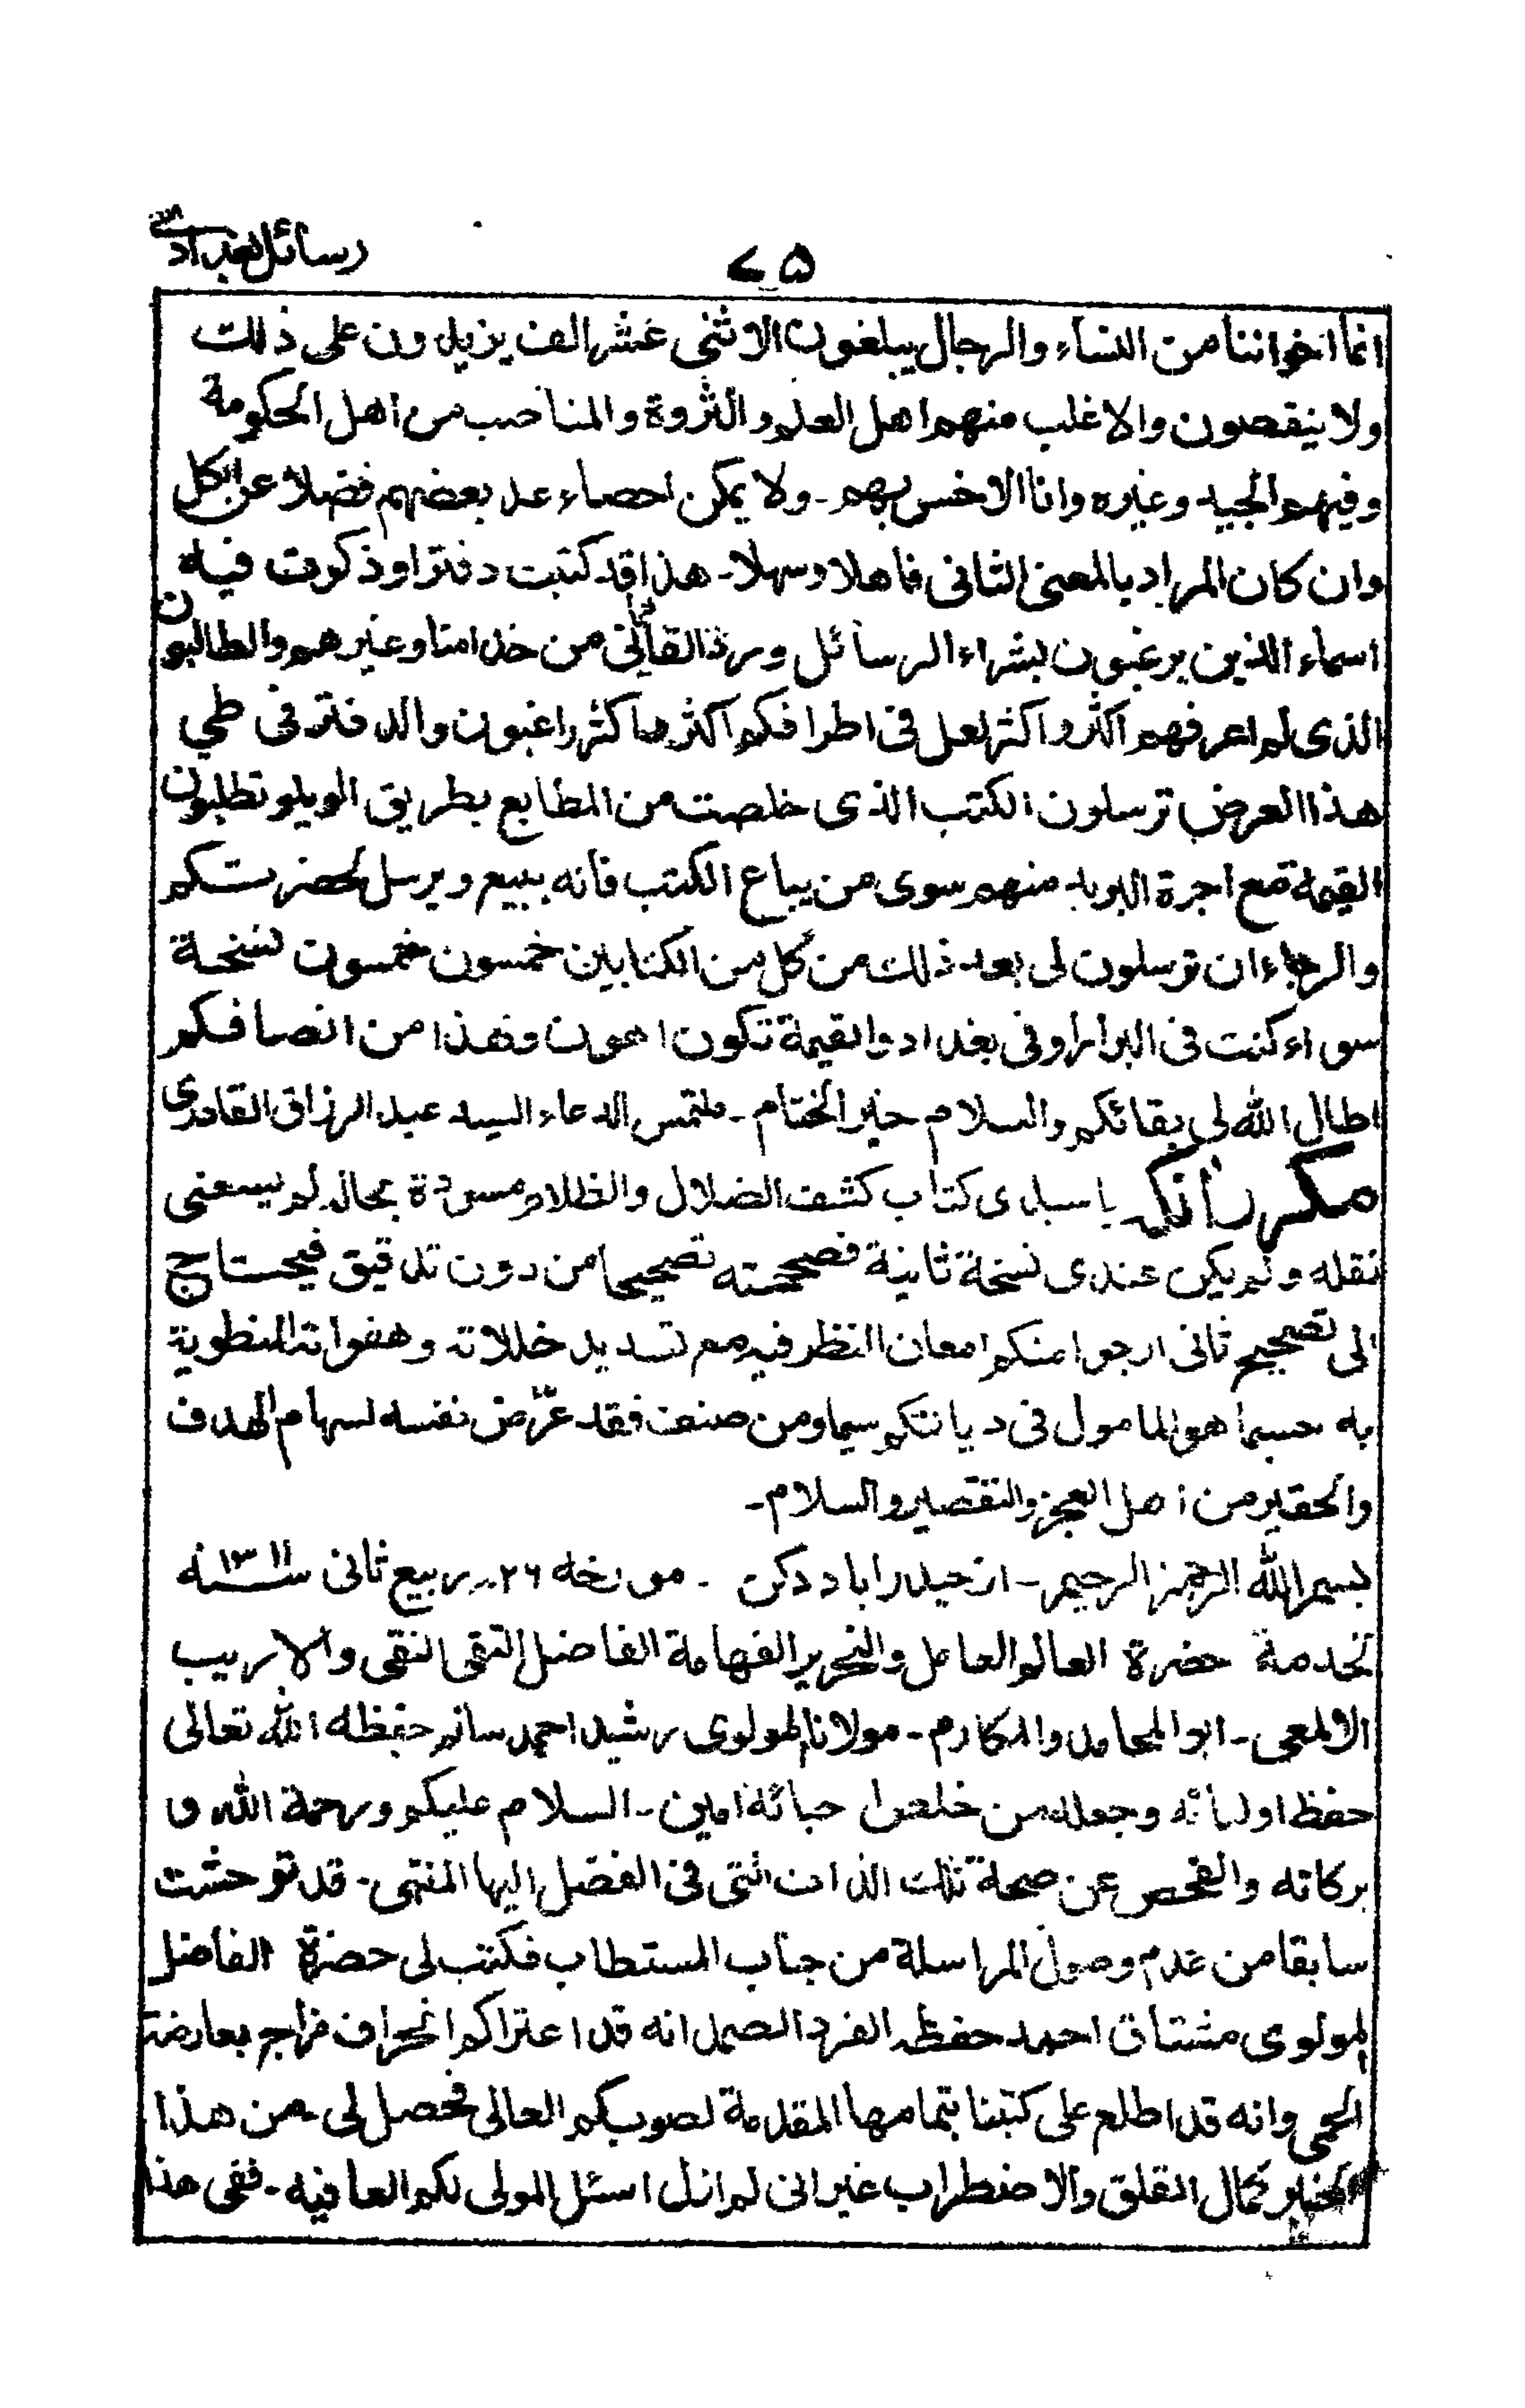 رسائل بغدادی
۷۵
انما اخواننا من النساء والرجال يبلغون الاثنى عشر الف يزيدون على ذلك
ولا ينقصون والاغلب منهم اهل العلم والثروة والمناصب من اهل الحكومة
وفيهم الجيد وغيره وانا الاخس بهم۔ ولا يمكن احصاء عد بعضهم فضلا عن الكل
وان كان المراد بالمعنى الثانى فاهلا وسهلا۔ هذا قد كتبت دفترا وذكرت فيه
اسماء الذين يرغبون بشراء الرسائل ورد القائى من خدامنا وغيرهم والطالبون
الذى لم اعرفهم اكثر واكثر لعل فى اطرافكم اكثر ما كثر راغبون والدفتر فى طي
هذا العرض ترسلون الكتب الذى خلصت من المطابع بطريق الويلو تطلبون
القيمة مع اجرة البريد منهم سوى من يباع الكتب فانه يبيع ويرسل لحضرتكم
والرجاء ان ترسلون لى بعد ذلك من كل من الكتابين خمسون خمسون نسخة
سواء كنت فى البرار او فى بغداد والقيمة تكون اهون وهذا من انصافكم
اطال الله لى بقائكم والسلام خير الختام۔ ملتمس الدعاء السيد عبد الرزاق القادرى
مكرر آنكه يا سيدى كتاب كشف الضلال والظلام مسودة بحاله لم يسعنى
نقله ولم يكن عندى نسخة ثانية فصححته تصحيحا من دون تدقيق فيحتاج
الى تصحيح ثانى ارجوا منكم امعان النظر فيه مع تسديد خللاته وهفواته المنطوية
به حسبما هو المامول فى ديانتكم سيما ومن صنف فقد عرّض نفسه لسهام الهدف
والحقير من اهل العجز والتقصير والسلام۔
بسم الله الرحمن الرحيم۔ از حيدراباد دكن ۔ مورخه ۲۶ ربيع ثانى سنه ۱۳۱۱
لخدمة حضرة العالم العامل والنحرير الفهامة الفاضل التقى النقى والاريب
الالمعى۔ ابو المحامد والمكارم۔ مولانا المولوى رشيد احمد سانر حفظه الله تعالى
حفظ اوليائه وجعله من خلعوا حبائه امين۔ السلام عليكم ورحمة الله و
بركاته والفحص عن صحة تلك الذات التى فى الفضل اليها المنتهى۔ قد توحشت
سابقا من عدم وصول المراسلة من جناب المستطاب فكتب لى حضرة الفاضل
المولوى مشتاق احمد حفظه الفرد الصمد انه قد اعتراكم انحراف مزاج بعارضة
الحمى وانه قد اطلع على كتبنا بتمامها المقدمة لصوبكم العالى فحصل لى من هذا
الخبر كمال القلق والاضطراب غير انى لم ازل اسئل المولى لكم العافيه۔ ففى هذا